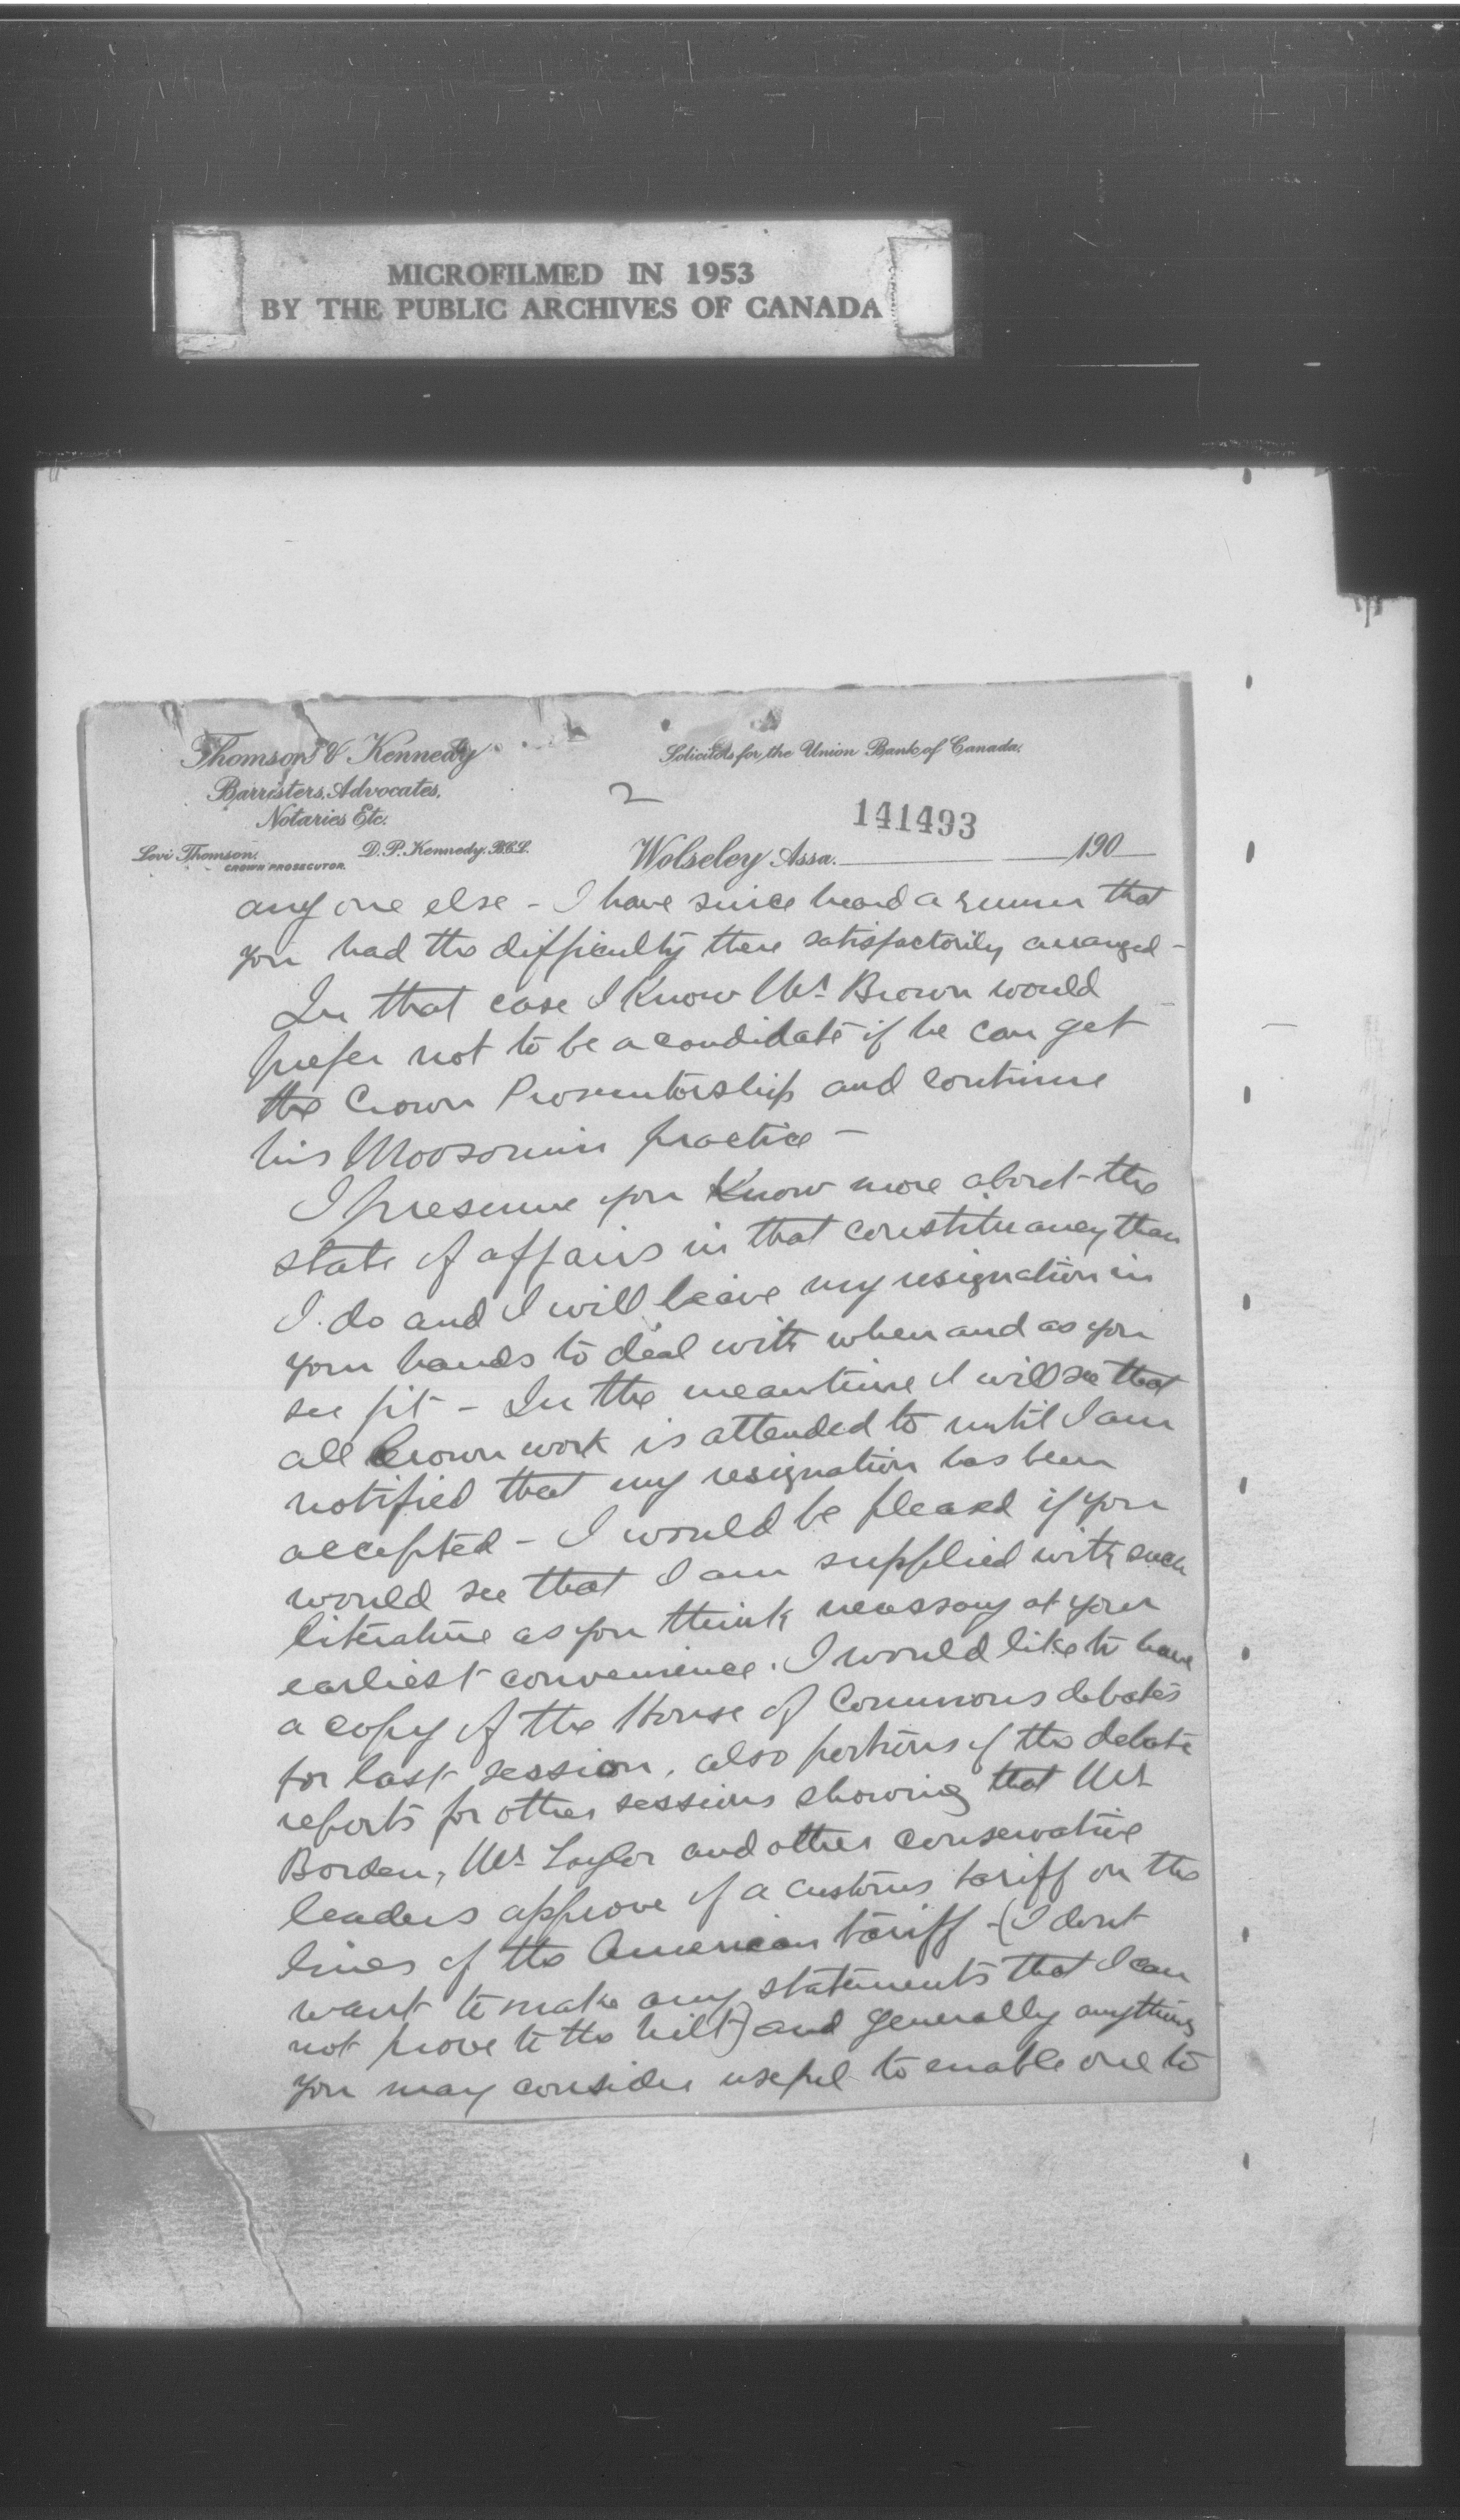 MICROFILMED IN 1953
BY THE PUBLIC ARCHIVES OF CANADA
Thomson & Kennedy
Barristers, Advocates,
Notaries Etc.
Levi Thomson.
CROWN PROSECUTOR.
D. P. Kennedy. B.C.L.
Solicitors for the Union Bank of Canada.
2
141493
Wolseley Assa. 190
any one else - I have since heard a rumor that
you had the difficulty there satisfactorily arranged -
In that case I know Mr. Brown would
prefer not to be a candidate if he can get
the Crown Prosecutorship and continue
his Moosomin practice -
I presume you know more about the
state of affairs in that constituancy than
I do and I will leave my resignation in
your hands to deal with when and as you
see fit - In the meantime I will see that
all Crown work is attended to until I am
notified that my resignation has been
accepted - I would be pleased if you
would see that I am supplied with such
literature as you think necessary at your
earliest convenience. I would like to have
a copy of the House of Commons debates
for last session, also portions of the debate
reports for other sessions showing that Mr
Borden, Mr. Taylor and other conservative
leaders approve of a customs tariff on the
lines of the American tariff - (I dont
want to make any statements that I can
not prove to the hilt) and generally anything
you may consider useful to enable one to